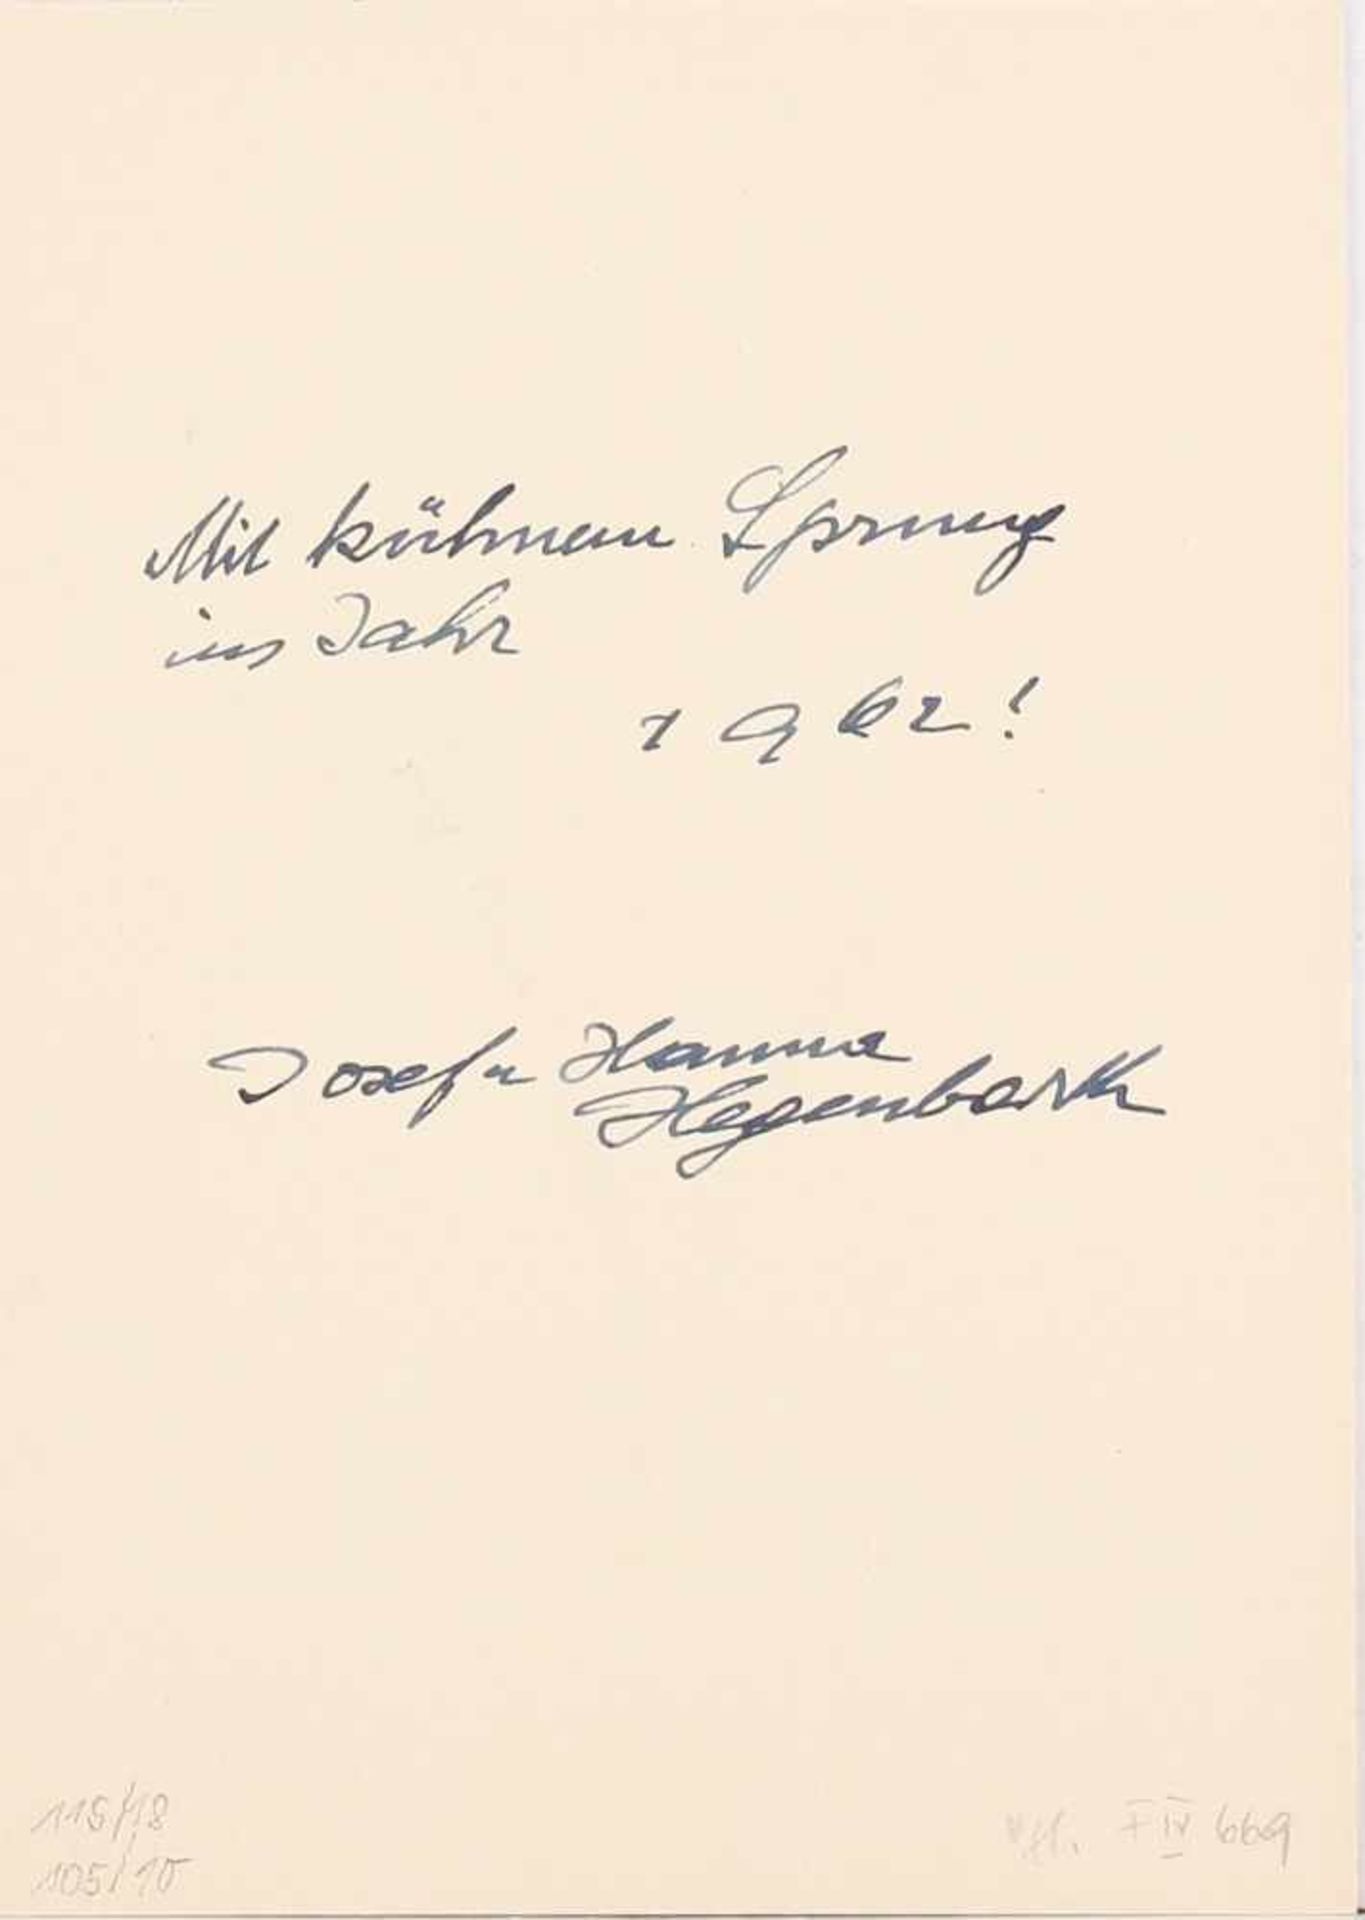 Mit kühnem Sprung
ins Jahr
1962!
Josef u Hanna
Hegenbarth
115/18
105/10
IV 669